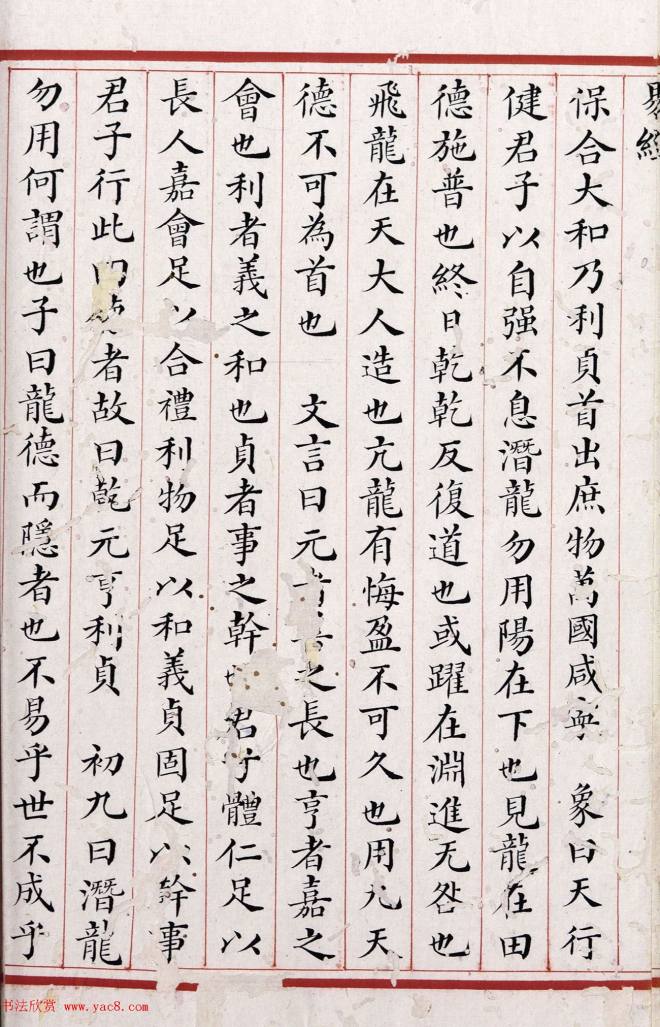 易經
保合大和乃利貞首出庶物萬國咸寧　象曰天行
健君子以自强不息潛龍勿用陽在下也見龍在田
德施普也終日乾乾反復道也或躍在淵進无咎也
飛龍在天大人造也亢龍有悔盈不可久也用九天
德不可為首也　文言曰元者善之長也亨者嘉之
會也利者義之和也貞者事之幹也君子體仁足以
長人嘉會足以合禮利物足以和義貞固足以幹事
君子行此四德者故曰乾元亨利貞　初九曰潛龍
勿用何謂也子曰龍德而隱者也不易乎世不成乎
书法欣赏 www.yac8.com